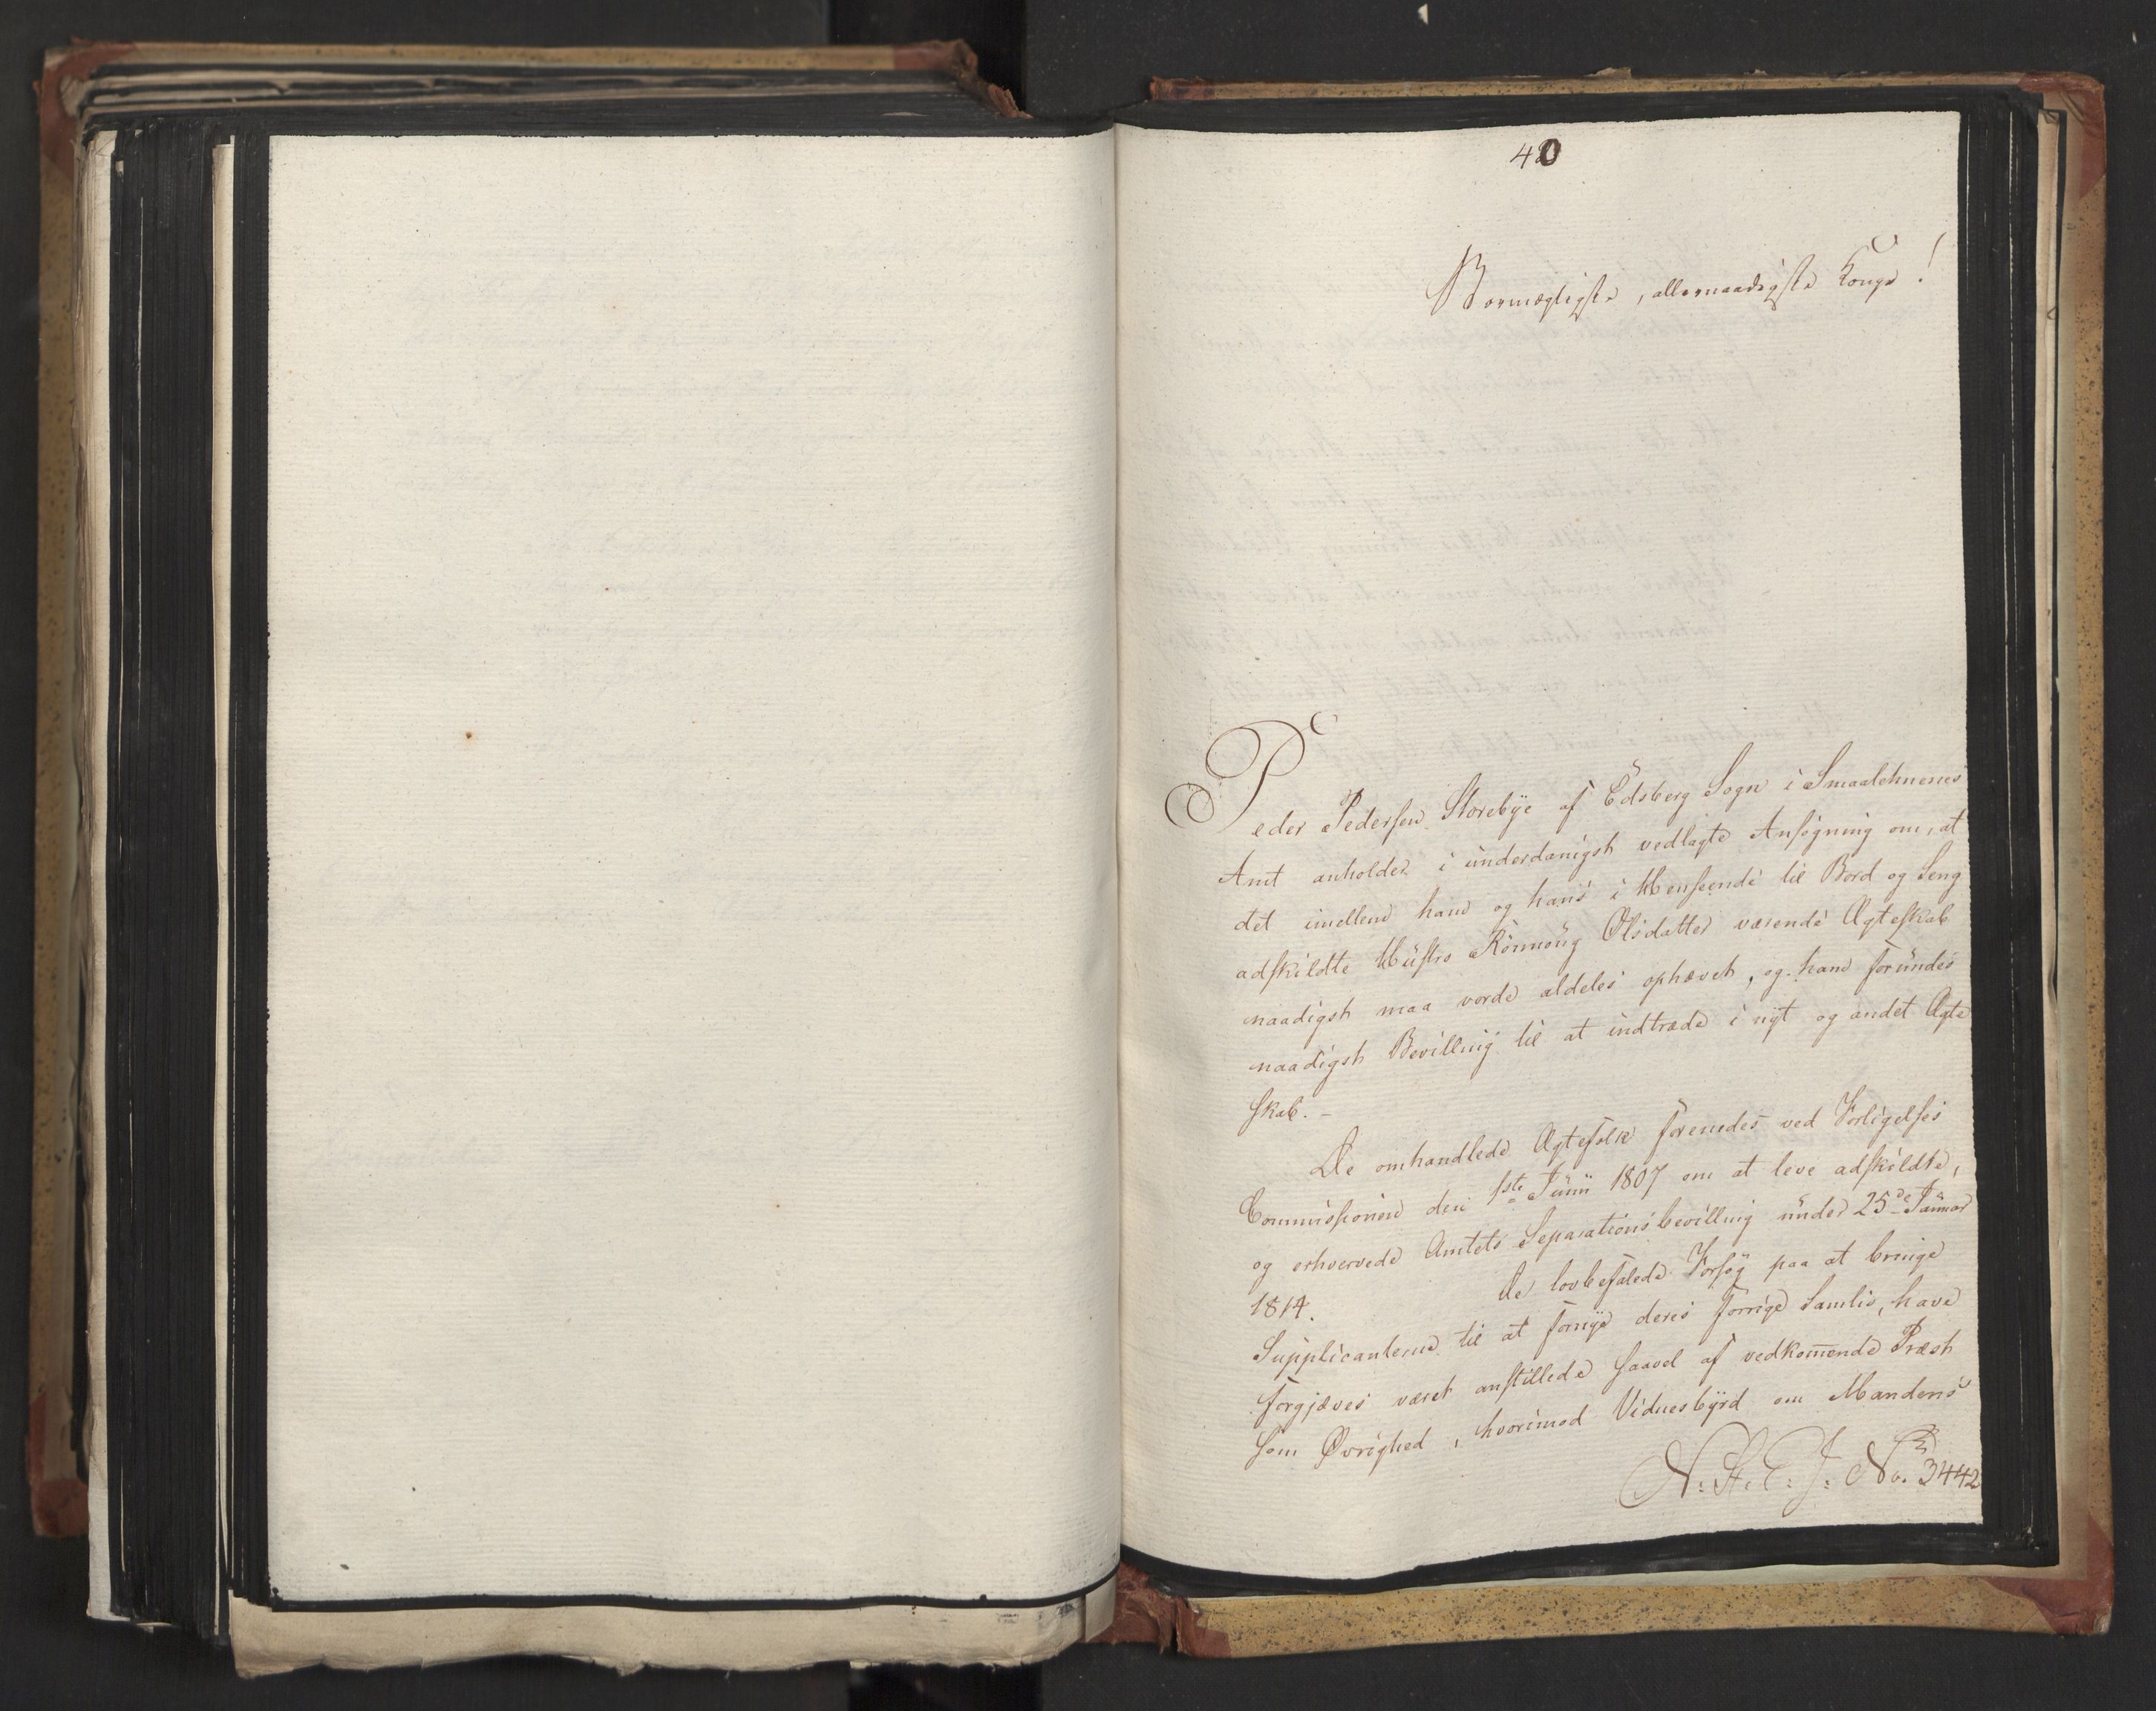 480
Stormægtigste, allernaadigste Konge!
Peder Pedersen Storebye af Edsberg Sogn i Smaalehnenes
Amt anholder i underdanigst vedlagte Ansøgning om, at
det imellem ham og hans i Henseende til Bord og Seng
adskildte Hustro Rønnoug Olsdatter værende Ægteskab
naadigst maa vorde aldeles ophævet, og ham forundes
naadigst Bevilling til at indtræde i nyt og andet Ægte
skab. -
De omhandlede Ægtefolk forenedes ved Forligelses
Commissionen den 1ste Junii 1807 om at leve adskildte,
og erhvervede Amtets Separationsbevilling under 25de Januar
1814. De lovbefalede Forsøg paa at bringe
Supplicanterne til at fornye deres forrige Samliv, have
forgjæves været anstillede saavel af vedkommende Præst
som Øvrighed, hvorimod Vidnesbyrd om Mandens
N: St: C: J: No. 3442